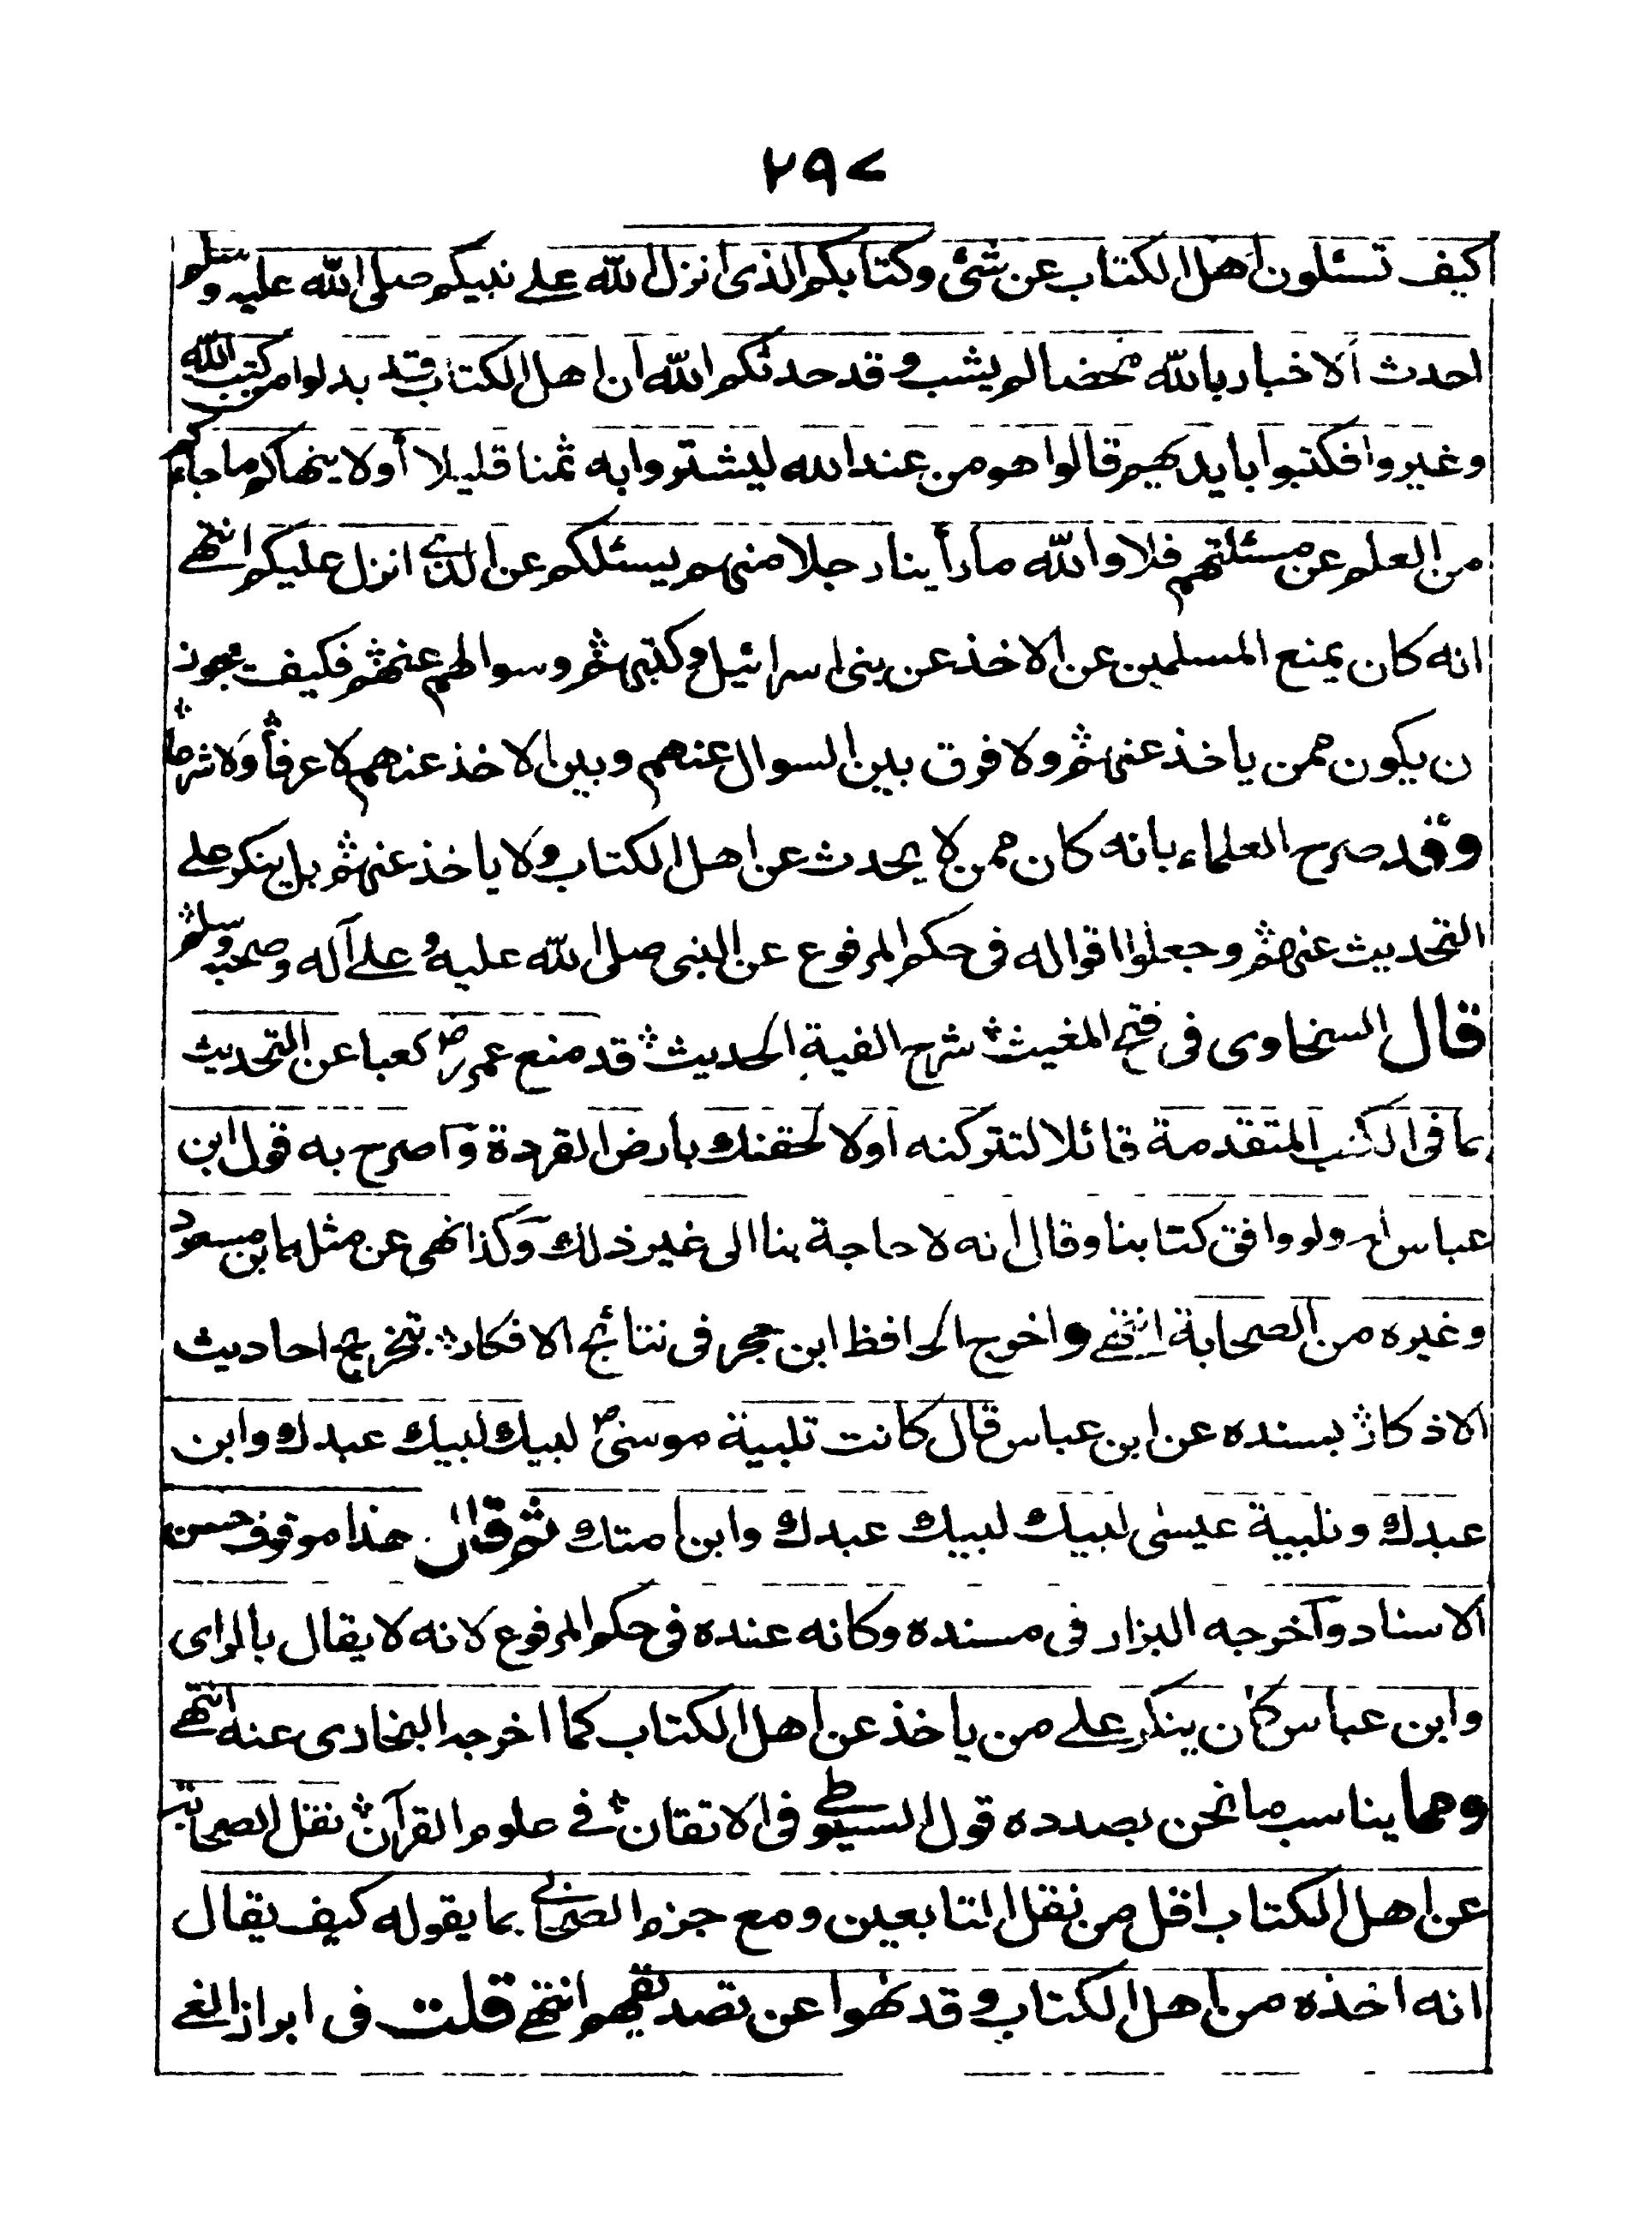 ٢٩٧
كيف تسئلون اهل الكتاب عن شئ وكتابكم الذى انزل الله علے نبيكم صلى الله عليه وسلم
احدث الاخبار بالله محضا لم يشب وقد حدثكم الله ان اهل الكتاب قد بدلوا من كتب الله
وغيروا فكتبوا بايديهم قالوا هو من عند الله ليشتروا به ثمنا قليلا أولا ينهاكم ما جاءكم
من العلم عن مسئلتهم فلا والله ما رأينا رجلا منهم يسئلكم عن الذے انزل عليكم انتهے
انه كان يمنع المسلمين عن الاخذ عن بنى اسرائيل وكتبهم وسوالهم عنهم فكيف يجوز
ن يكون ممن ياخذ عنهم ولا فرق بين السوال عنهم وبين الاخذ عنهم لا عرفا ولا شرعا
وقد صرح العلماء بانه كان ممن لا يحدث عن اهل الكتاب ولا ياخذ عنهم بل ينكر علے
التحديث عنهم وجعلوا اقواله فى حكم المرفوع عن النبى صلى الله عليه وعلے آله وصحبه وسلم
قال السخاوى فى فتح المغيث شرح الفية الحديث قد منع عمر رض كعبا عن التحديث
بما فى الكتب المتقدمة قائلا لتتركنه اولا لحقنك بارض القردة وآصرح به قول ابن
عباس له ولو وافق كتابنا وقال انه لا حاجة بنا الى غير ذلك وكذا نهى عن مثله ابن مسعود
وغيره من الصحابة انتهے واخرج الحافظ ابن حجر فى نتائج الافكار بتخريج احاديث
الاذكار بسنده عن ابن عباس قال كانت تلبية موسىٰ لبيك لبيك عبدك وابن
عبدك وتلبية عيسىٰ لبيك لبيك عبدك وابن امتك ثم قال هذا موقوف حسن
الاسناد وآخرجه البزار فى مسنده وكانه عنده فى حكم المرفوع لانه لا يقال بالراى
وابن عباس كان ينكر علے من ياخذ عن اهل الكتاب كما اخرجه البخارى عنه انتهے
ومما يناسب ما نحن بصدده قول السيوطے فى الاتقان فے علوم القرآن نقل الصحابة
عن اهل الكتاب اقل من نقل التابعين ومع جزم الصحابے بما يقوله كيف يقال
انه اخذه من اهل الكتاب وقد نهوا عن تصديقهم انتهے قلت فى ابراز الغے